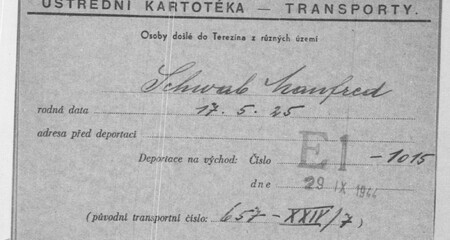 ÚSTŘEDNÍ KARTOTÉKA — TRANSPORTY.
Osoby došlé do Terezína z různých území
Schwab Manfred
rodná data 17. 5. 25
adresa před deportací
Deportace na východ: Číslo E1 -1015
dne 29 IX 1944
(původní transportní číslo: 657 - XXIV/7)